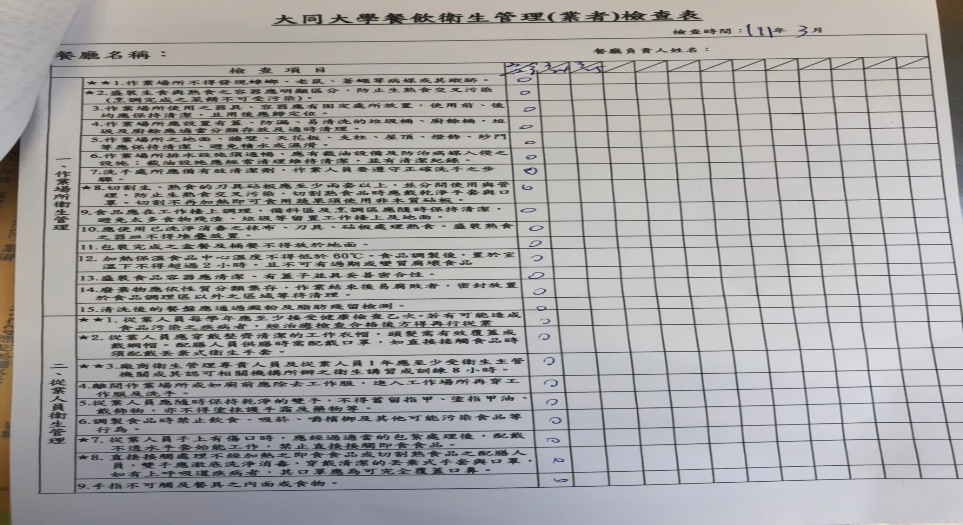 大同大學餐飲衛生管理(業者)檢查表
檢查時間：111年 3月
餐廳名稱：
餐廳負責人姓名：
檢查項目
一、作業場所衛生管理
★★1.作業場所不得發現蟑螂、老鼠、蒼蠅等病媒或其蹤跡。
★2.盛裝生食與熟食之容器應明顯區分，防止生熟食交叉污染
(烹調完成之菜餚不可受污染)。
3.作業場所使用之器具、容器應有固定處所放置，使用前、後
均應保持清潔，且用後應歸定位。
4.作業場所應設置有蓋、防漏、易清洗的垃圾桶、廚餘桶，垃
圾及廚餘應適當分類存放及適時清理。
5.作業場所之地面、牆壁、天花板、支柱、屋頂、燈飾、紗門
等應保持清潔、避免積水或濕滑。
6.作業場所排水設施須通暢，應有截油設備及防治病媒入侵之
設施；截油設施應經常清理維持清潔，並有清潔紀錄。
7.洗手處所應備有效清潔劑，作業人員要遵守正確洗手之步
驟。
★8.切割生、熟食的刀具砧板應至少兩套以上，並分開使用與管
理，防止生熟食交叉污染，切割熟食品時應戴乾淨手套與口
罩。切割不再加熱即可食用蔬果須使用非木質砧板。
9.食品應在工作檯上調理，備料區及烹調區應隨時保持清潔，
避免太多食物殘渣、垃圾等留置工作檯上及地面。
10.應使用已洗淨消毒之抹布、刀具、砧板處理熟食，盛裝熟食
之器皿不得堆疊放置。
11.包裝完成之盒餐及桶餐不得放於地面。
12.加熱保溫食品中心溫度不得低於60℃，食品調製後，置於室
溫下不得超過2小時，且不可有過期或變質腐壞食品
13.盛裝食品容器應清潔、有蓋子並具妥善密合性。
14.廢棄物應依性質分類集存，作業結束後易腐敗者，密封放置
於食品調理區以外之區域等待清理。
15.清洗後的餐盤應通過澱粉及脂肪殘留檢測。
二、從業人員衛生管理
★★1.從業人員每學年應至少接受健康檢查乙次。若有可能造成
食品污染之疾病者，經治癒檢查合格後方得再行從業
★2.從業人員應穿戴整齊清潔的工作衣帽，頭髮需有效覆蓋或
戴網帽。配膳人員供膳時需配戴口罩，如直接接觸食品時
須配戴丟棄式衛生手套。
★★3.廠商衛生管理專責人員及從業人員1年應至少受衛生主管
機關或其認可相關機構所辦之衛生講習或訓練8小時。
4.離開作業場所或如廁前應除去工作服，進入工作場所再穿工
作服及洗手。
5.從業人員應隨時保持乾淨的雙手，不得蓄留指甲、塗指甲油、
戴飾物，亦不得塗抹護手霜及藥物等。
6.調製食品時禁止飲食、吸菸、嚼檳榔及其他可能污染食品等
行為。
★7.從業人員手上有傷口時，應經過適當的包紮處理後，配戴
不透水手套始能工作，禁止直接接觸即食食品。
★8.直接接觸處理不經加熱之即食食品或切割熟食品之配膳人
員，雙手應澈底洗淨消毒，穿戴清潔的丟棄式手套與口罩，
如有上呼吸道疾病者，其口罩應為可完全覆蓋口鼻。
9.手指不可觸及餐具之內面或食物。